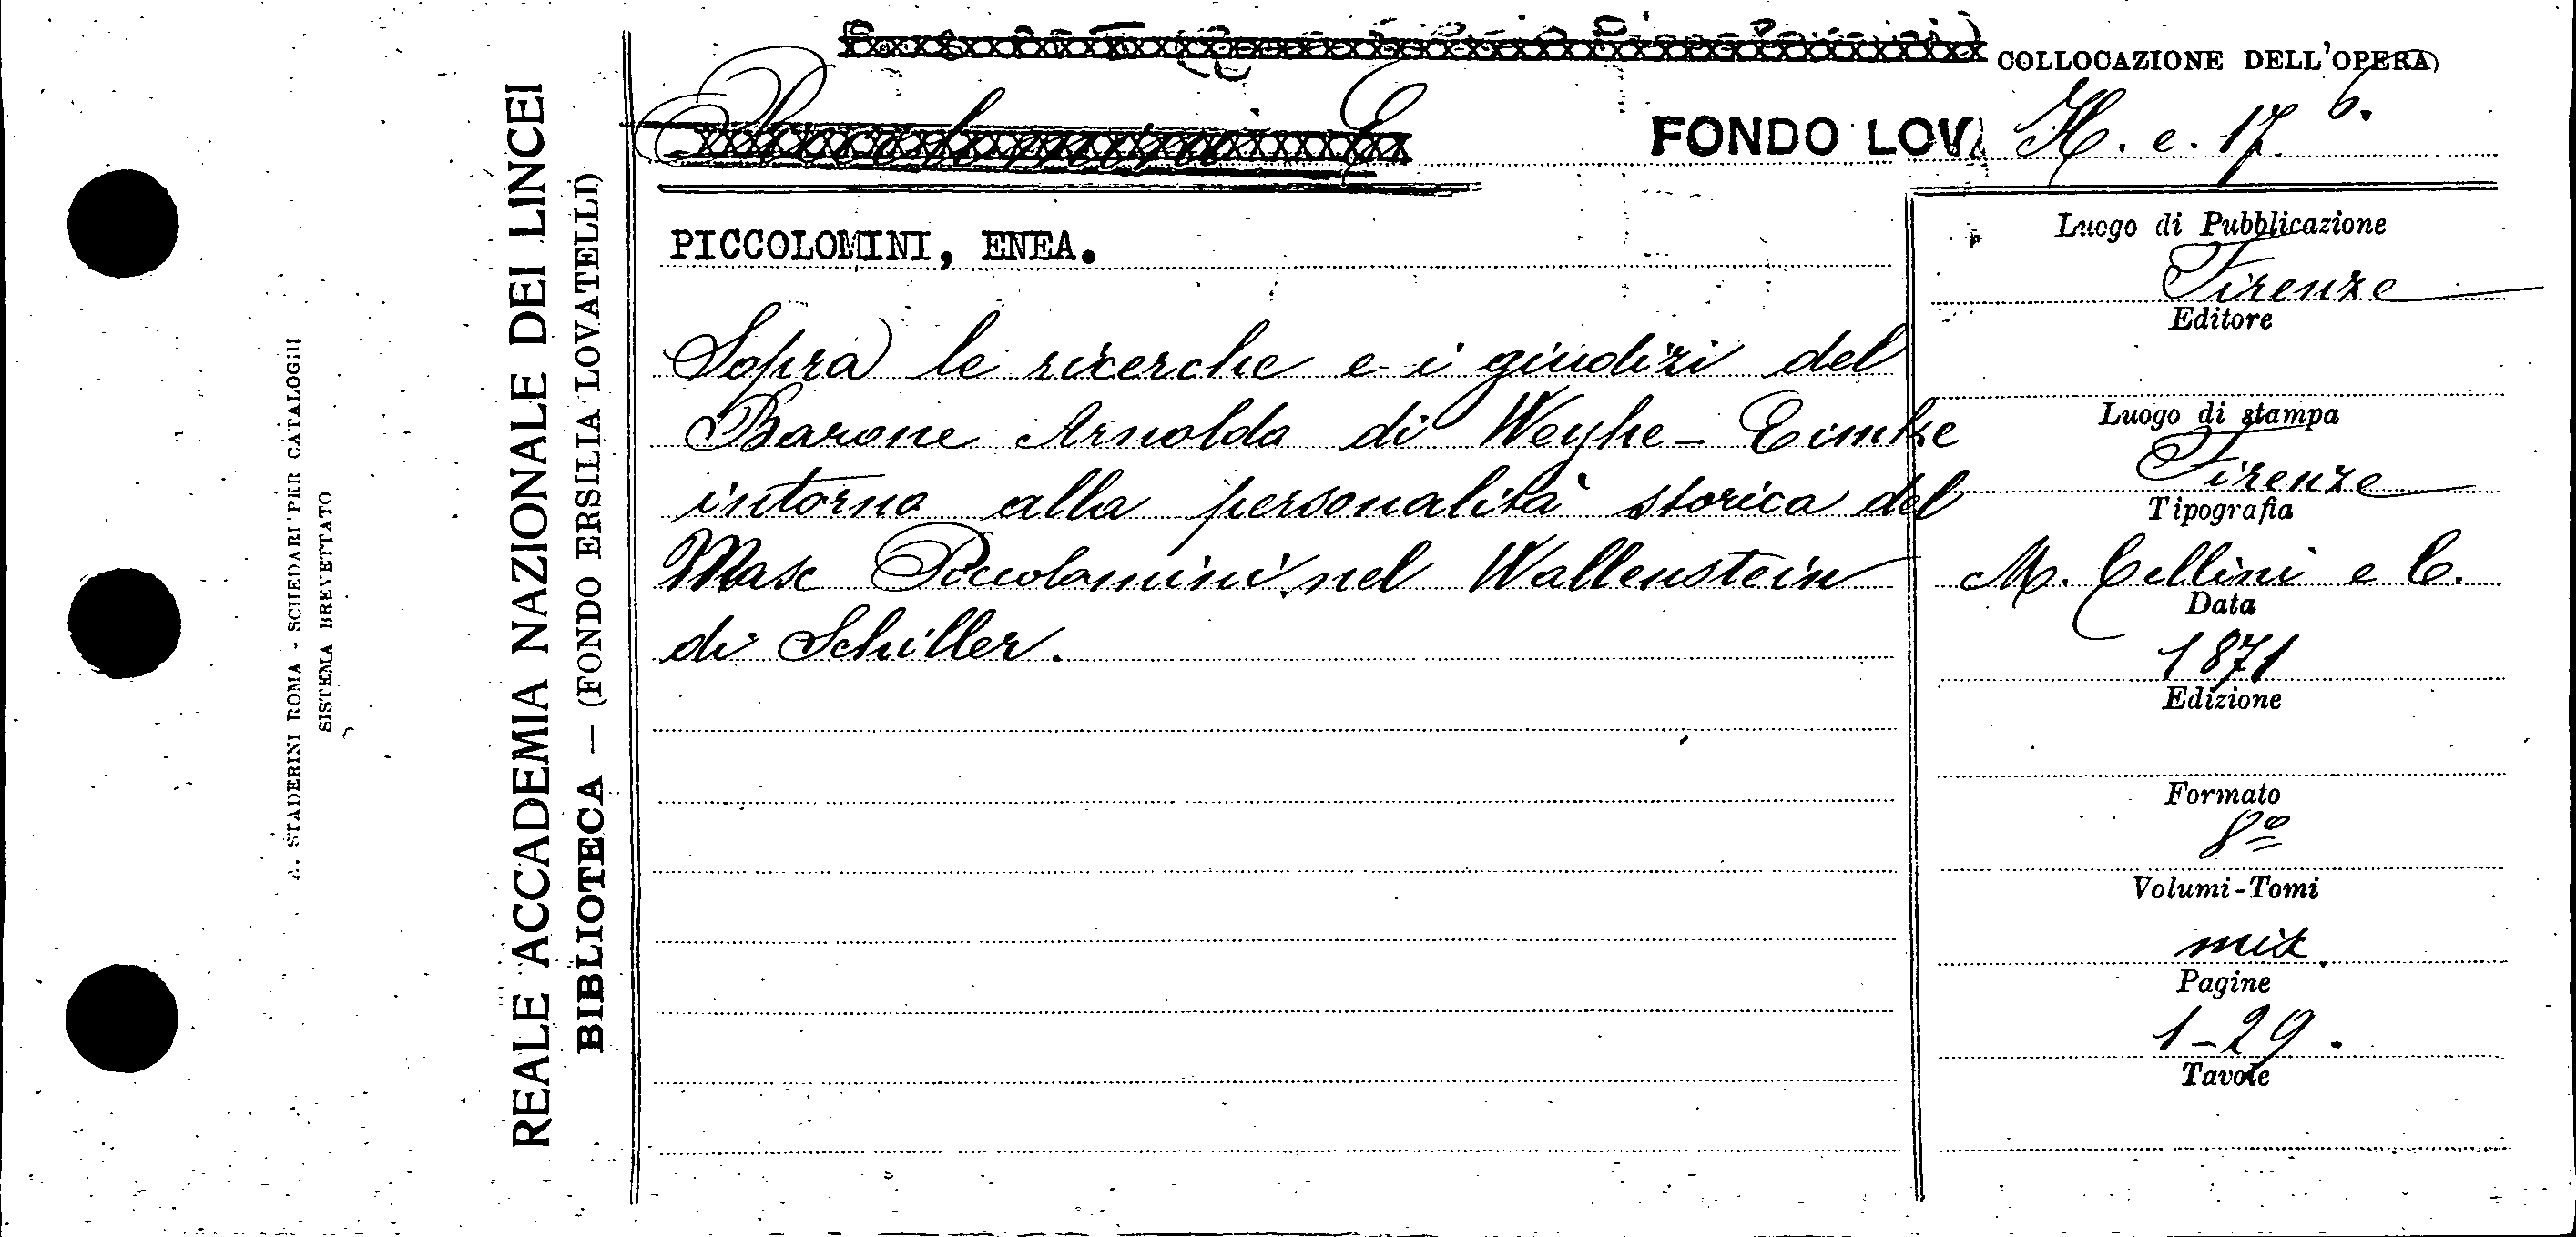 A. STADERINI ROMA - SCHEDARI PER CATALOGHI
SISTEMA BREVETTATO
REALE ACCADEMIA NAZIONALE DEI LINCEI
BIBLIOTECA — (FONDO ERSILIA LOVATELLI)
COLLOCAZIONE DELL'OPERA
Piccolomini E
FONDO LOV. H. e. 17 6.
PICCOLOMINI, ENEA.
Sopra le ricerche e i giudizi del
Barone Arnoldo di Weyhe - Eimke
intorno alla personalità storica del
Max Piccolomini nel Wallenstein
di Schiller.
Luogo di Pubblicazione
Firenze
Editore
Luogo di stampa
Firenze
Tipografia
M. Cellini e C.
Data
1871
Edizione
Formato
8º
Volumi-Tomi
Pagine
1-29.
Tavole